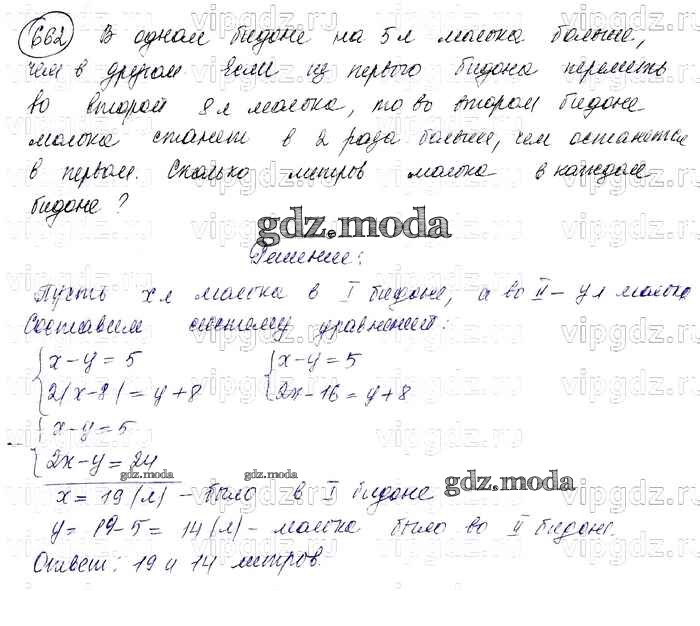 662 В одном бидоне на 5 л молока больше,
чем в другом Если из первого бидона перелить
во второй 8 л молока, то во втором бидоне
молока станет в 2 раза больше, чем останется
в первом. Сколько литров молока в каждом
бидоне ?
gdz.moda
Решение:
Пусть x л молока в I бидоне, а во II – y л молока
Составим систему уравнений:
x – y = 5 x – y = 5
2(x-8) = y + 8 2x – 16 = y + 8
x – y = 5
2x – y = 24
gdz.moda gdz.moda
x = 19 (л) – было в I бидоне gdz.moda
y = 19 – 5 = 14 (л) – молока было во II бидоне.
Ответ: 19 и 14 литров.
vipgdz.ru